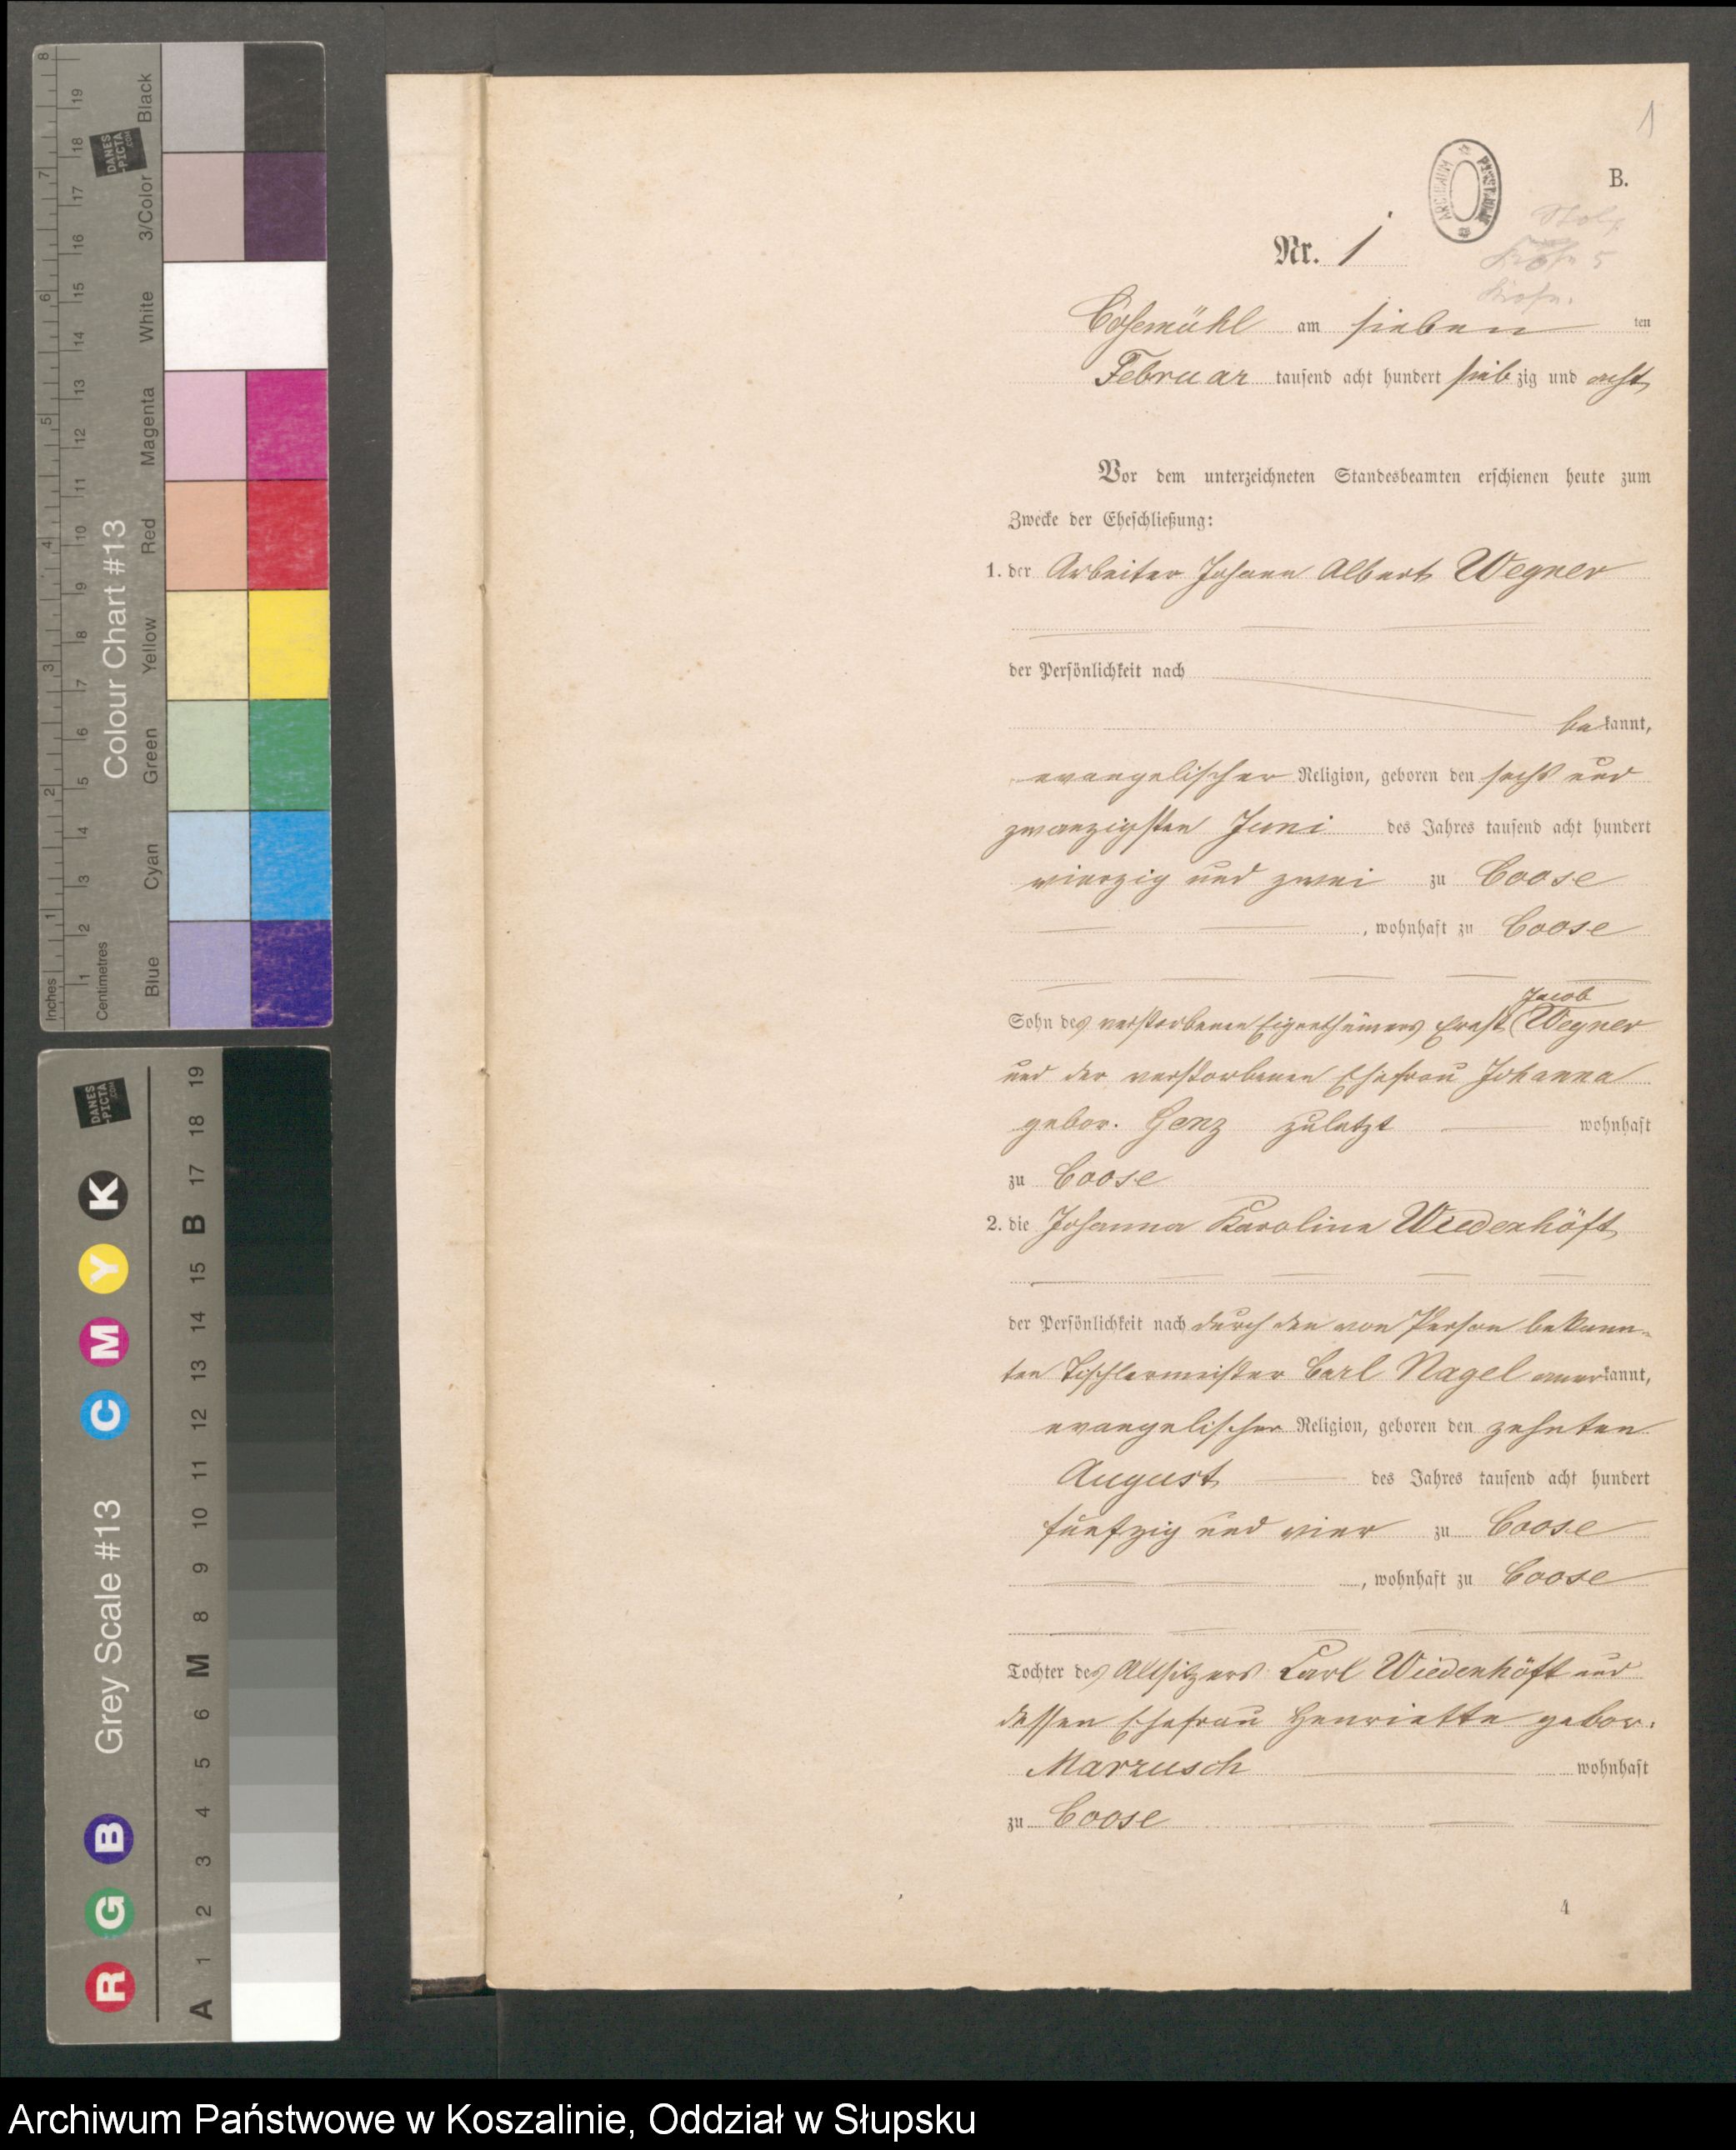 1
B.
ARCHIWUM PAŃSTWOWE
Nr. 1
Stolp
Cosemühl am sieben ten
Februar tausend acht hundert sieb zig und acht
Vor dem unterzeichneten Standesbeamten erschienen heute zum
Zwecke der Eheschließung:
1. der Arbeiter Johann Albert Wegner
der Persönlichkeit nach
be kannt,
evangelischer Religion, geboren den sechs und
zwanzigsten Juni des Jahres tausend acht hundert
vierzig und zwei zu Coose
, wohnhaft zu Coose
Jacob
Sohn des verstorbenen Eigenthümers Ernst Wegner
und der verstorbenen Ehefrau Johanna
gebor. Genz zuletzt wohnhaft
zu Coose
2. die Johanna Karoline Wiedenhöft
der Persönlichkeit nach durch den von Person bekann-
ten Tischlermeister Carl Nagel anerkannt,
evangelischer Religion, geboren den zehnten
August des Jahres tausend acht hundert
fünfzig und vier zu Coose
, wohnhaft zu Coose
Tochter des Altsitzers Carl Wiedenhöft und
dessen Ehefrau Henriette gebor.
Marzusch wohnhaft
zu Coose
4
Inches 1 2 3 4 5 6 7 8
Centimetres 1 2 3 4 5 6 7 8 9 10 11 12 13 14 15 16 17 18 19
Colour Chart #13
Blue Cyan Green Yellow Red Magenta White 3/Color Black
DANES
-PICTA
.COM
Grey Scale #13
R G B C M Y K
A 1 2 3 4 5 6 M 8 9 10 11 12 13 14 15 B 17 18 19
DANES
-PICTA
.COM
Archiwum Państwowe w Koszalinie, Oddział w Słupsku